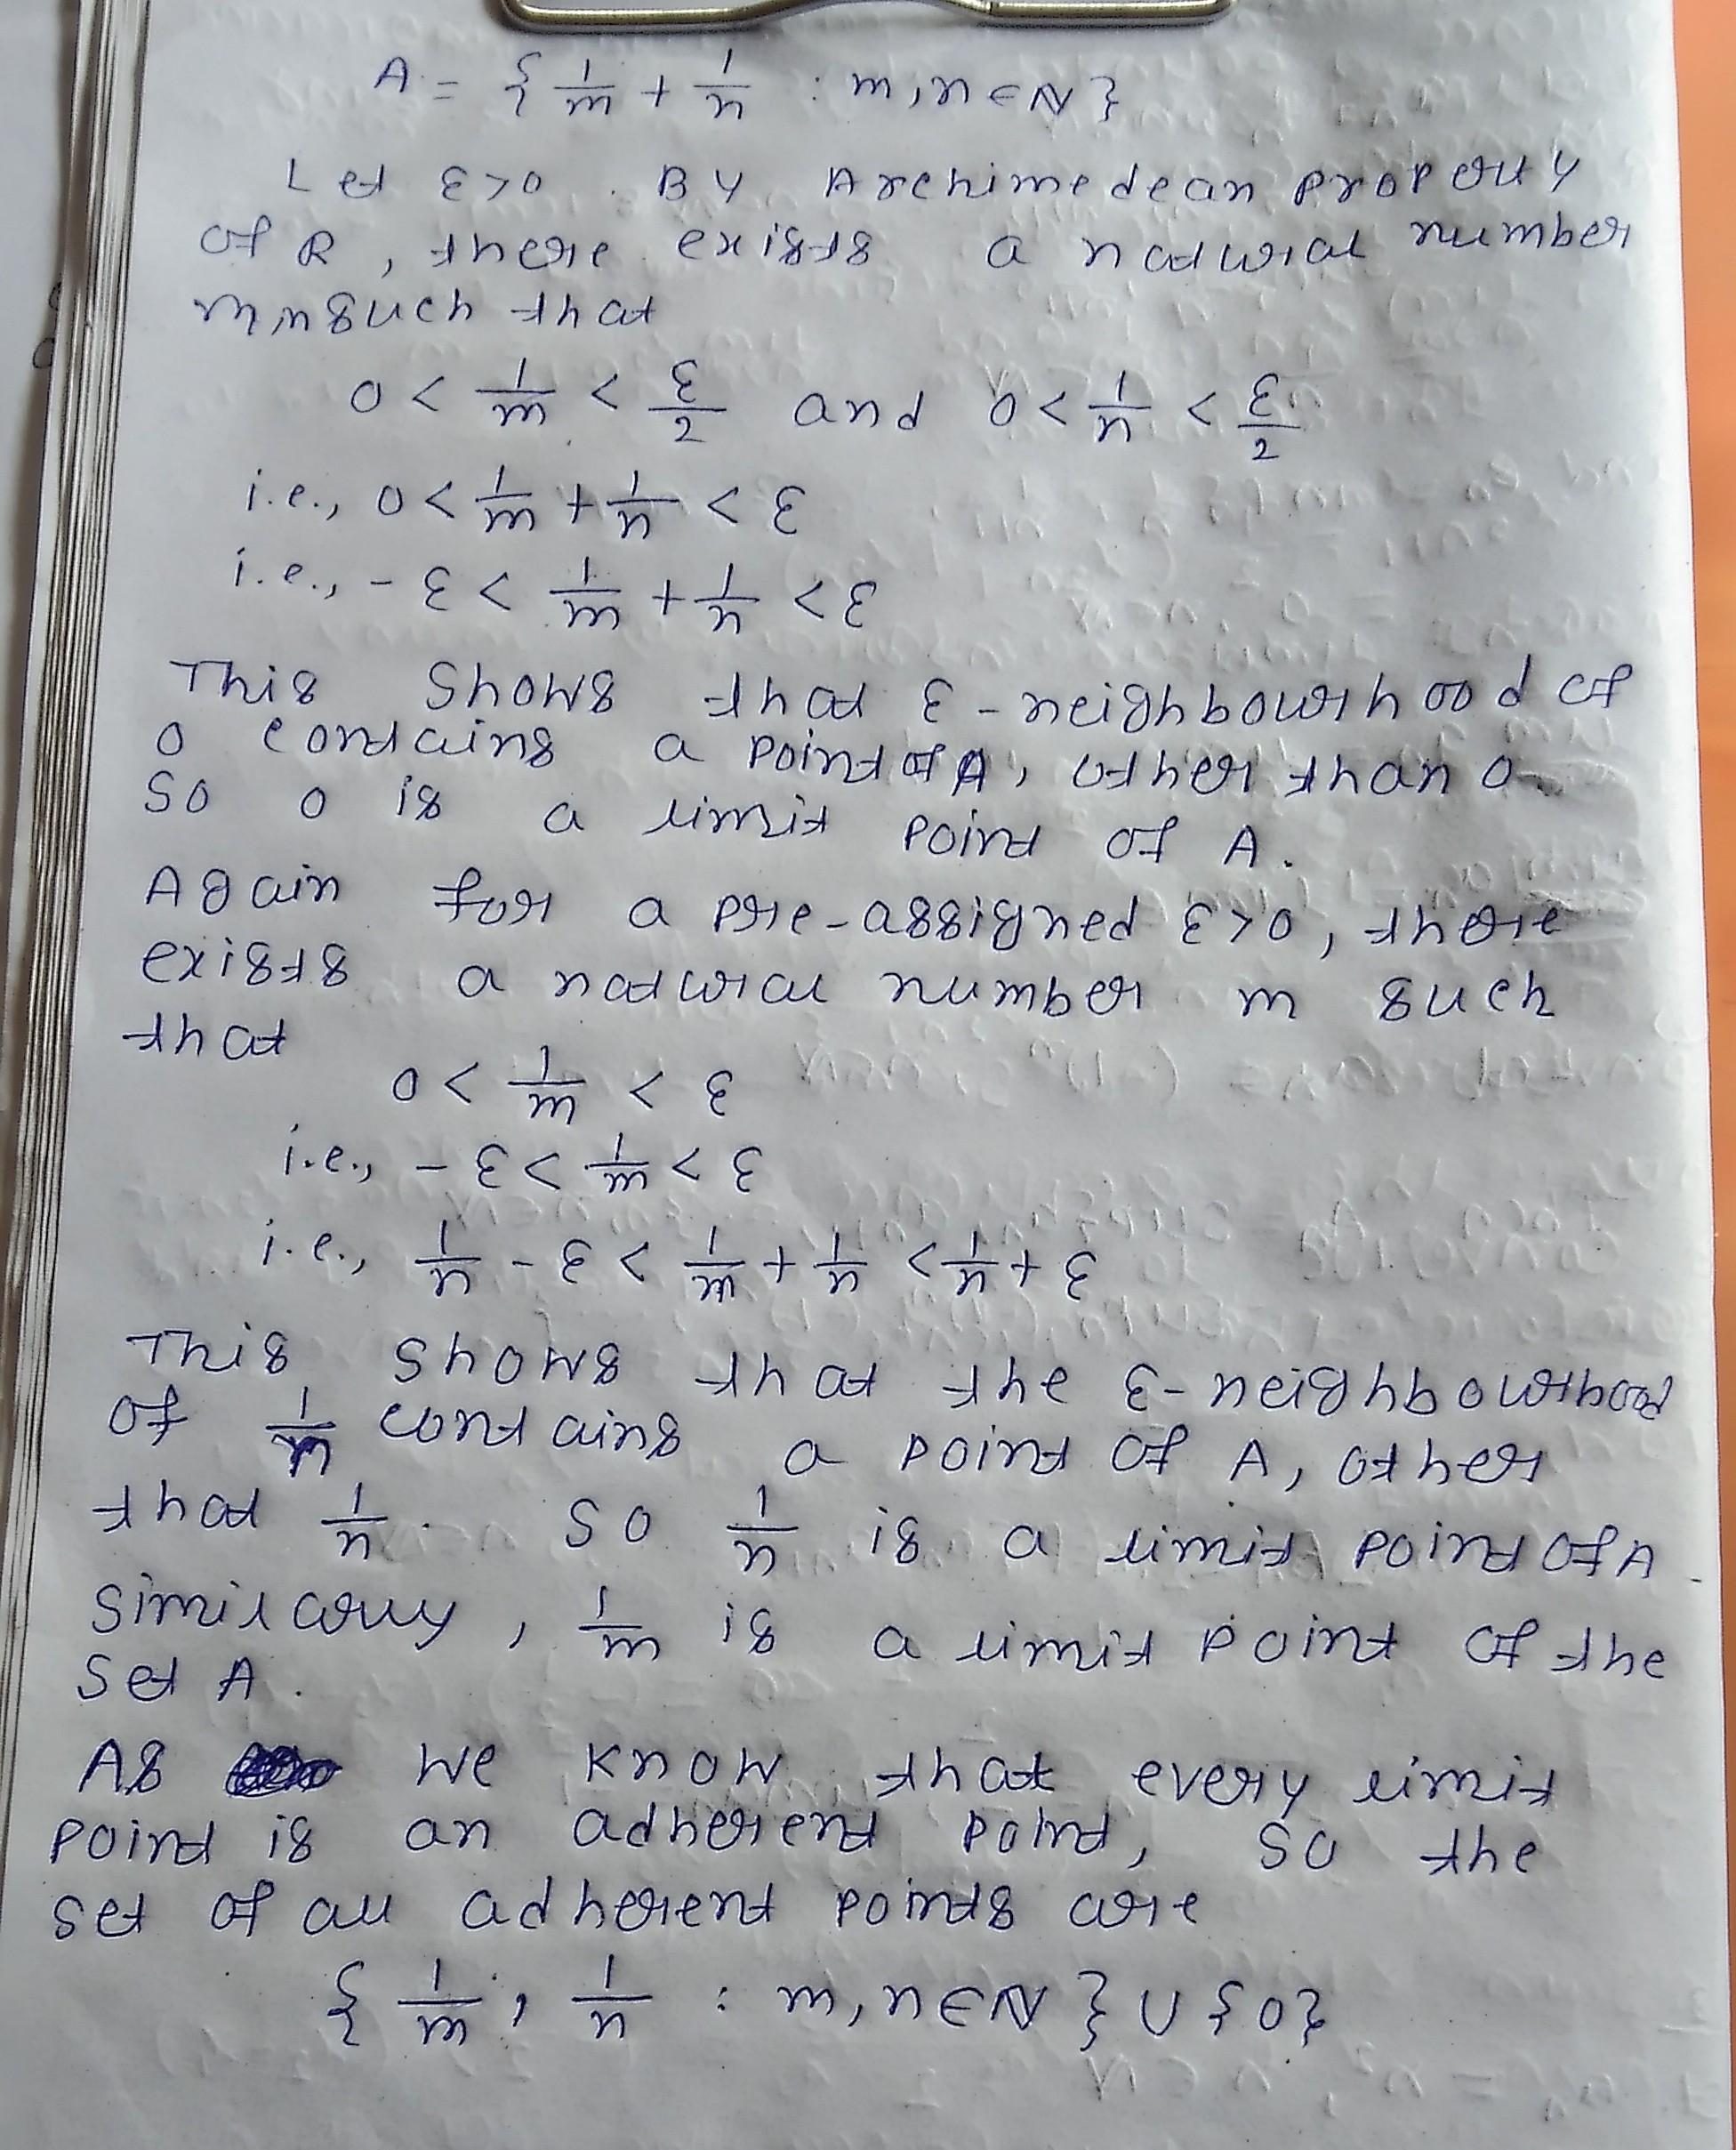 A = { 1/m + 1/n : m, n ∈ N }
Let ε>0 . By Archimedean property
of R, there exists a natural number
m,n such that
0 < 1/m < ε/2 and 0 < 1/n < ε/2
i.e., 0 < 1/m + 1/n < ε
i.e., - ε < 1/m + 1/n < ε
This shows that ε - neighbourhood of
0 contains a point of A, other than 0
So 0 is a limit point of A.
Again for a pre-assigned ε>0, there
exists a natural number m such
that
0 < 1/m < ε
i.e., - ε < 1/m < ε
i.e., 1/n - ε < 1/m + 1/n < 1/n + ε
This shows that the ε- neighbourhood
of 1/n contains a point of A, other
that 1/n. So 1/n is a limit point of A
Similarly, 1/m is a limit point of the
set A.
As we know that every limit
point is an adherent point, so the
set of all adherent points are
{ 1/m, 1/n : m, n ∈ N } ∪ {0}